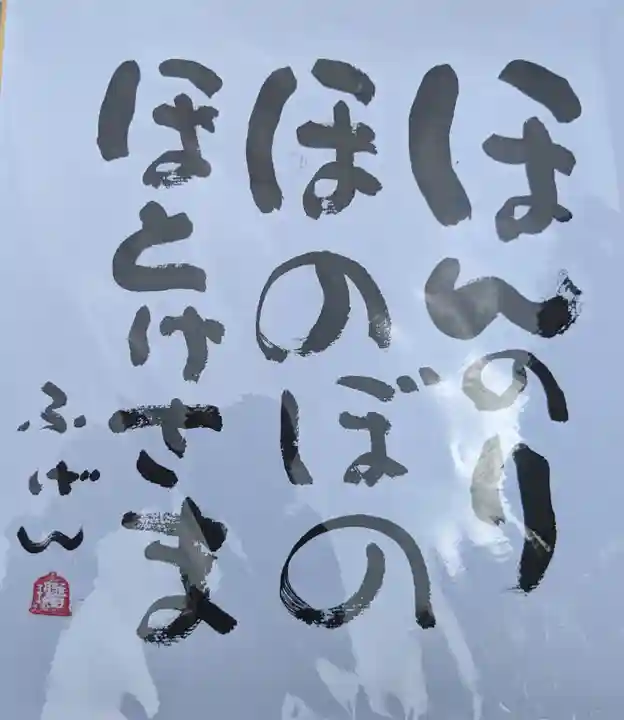 ほんのり
ほのぼの
ほとけさま
ふげん